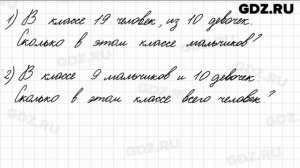 GDZ.RU
1) В классе 19 человек, из 10 девочек.
Сколько в этом классе мальчиков?
2) В классе 9 мальчиков и 10 девочек
Сколько в этом классе всего человек?